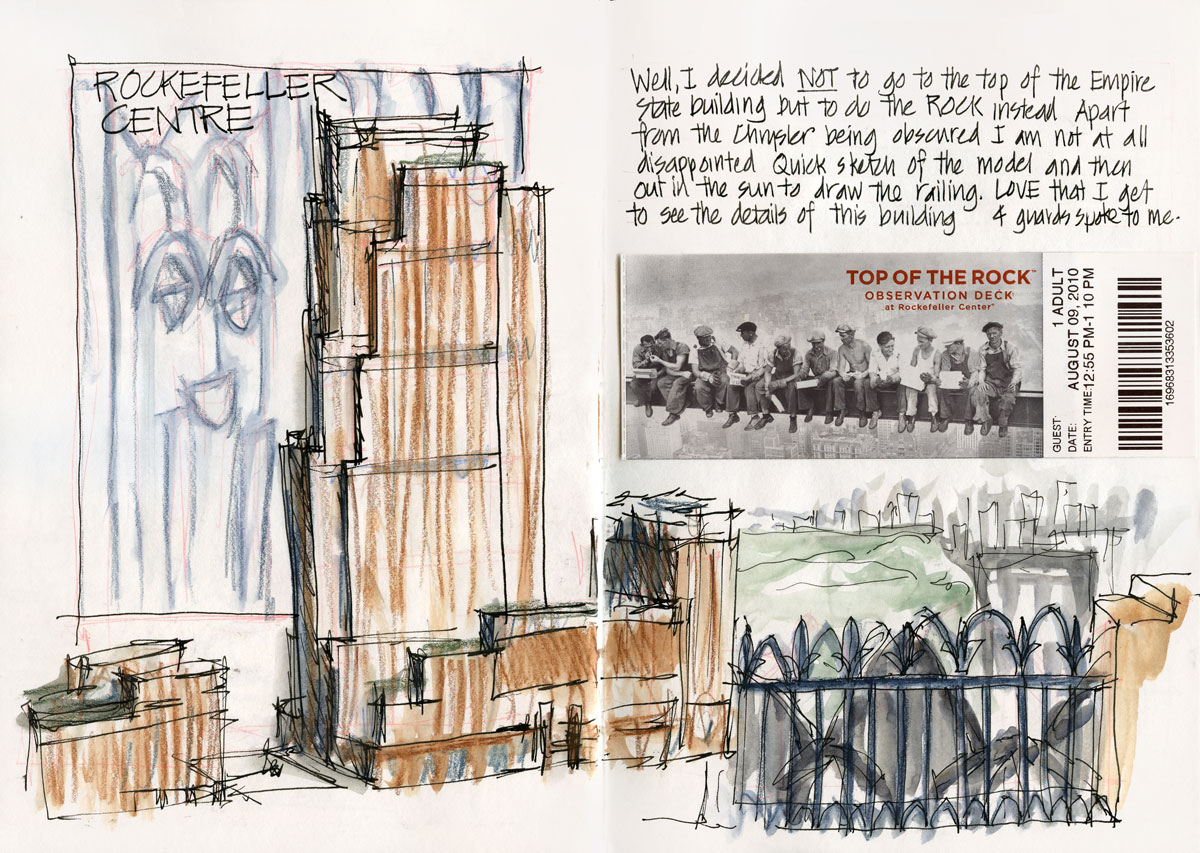 ROCKEFELLER
CENTRE
Well, I decided NOT to go to the top of the Empire
State building but to do the ROCK instead Apart
from the Chrysler being obscured I am not at all
disappointed Quick sketch of the model and then
out in the sun to draw the railing. LOVE that I get
to see the details of this building 4 guards spoke to me.
TOP OF THE ROCK™
OBSERVATION DECK
at Rockefeller Center™
GUEST: 1 ADULT
DATE: AUGUST 09, 2010
ENTRY TIME: 12:55 PM-1:10 PM
16968313353602